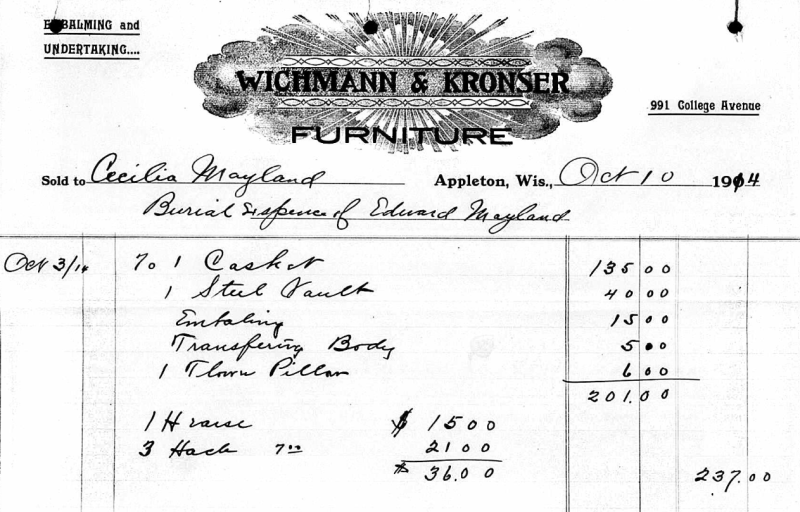 EMBALMING and
UNDERTAKING....
WICHMANN & KRONSER
FURNITURE
991 College Avenue
Sold to Cecilia Mayland Appleton, Wis., Oct 10 1914
Burial Expence of Edward Mayland
Oct 3/14 To 1 Casket 135 00
1 Steel Vault 40 00
Embaling 15 00
Transfering Body 5 00
1 Flown Pillow 6 00
201.00
1 Hearse $ 15 00
3 Hack 7.00 21 00
$ 36.00
237.00